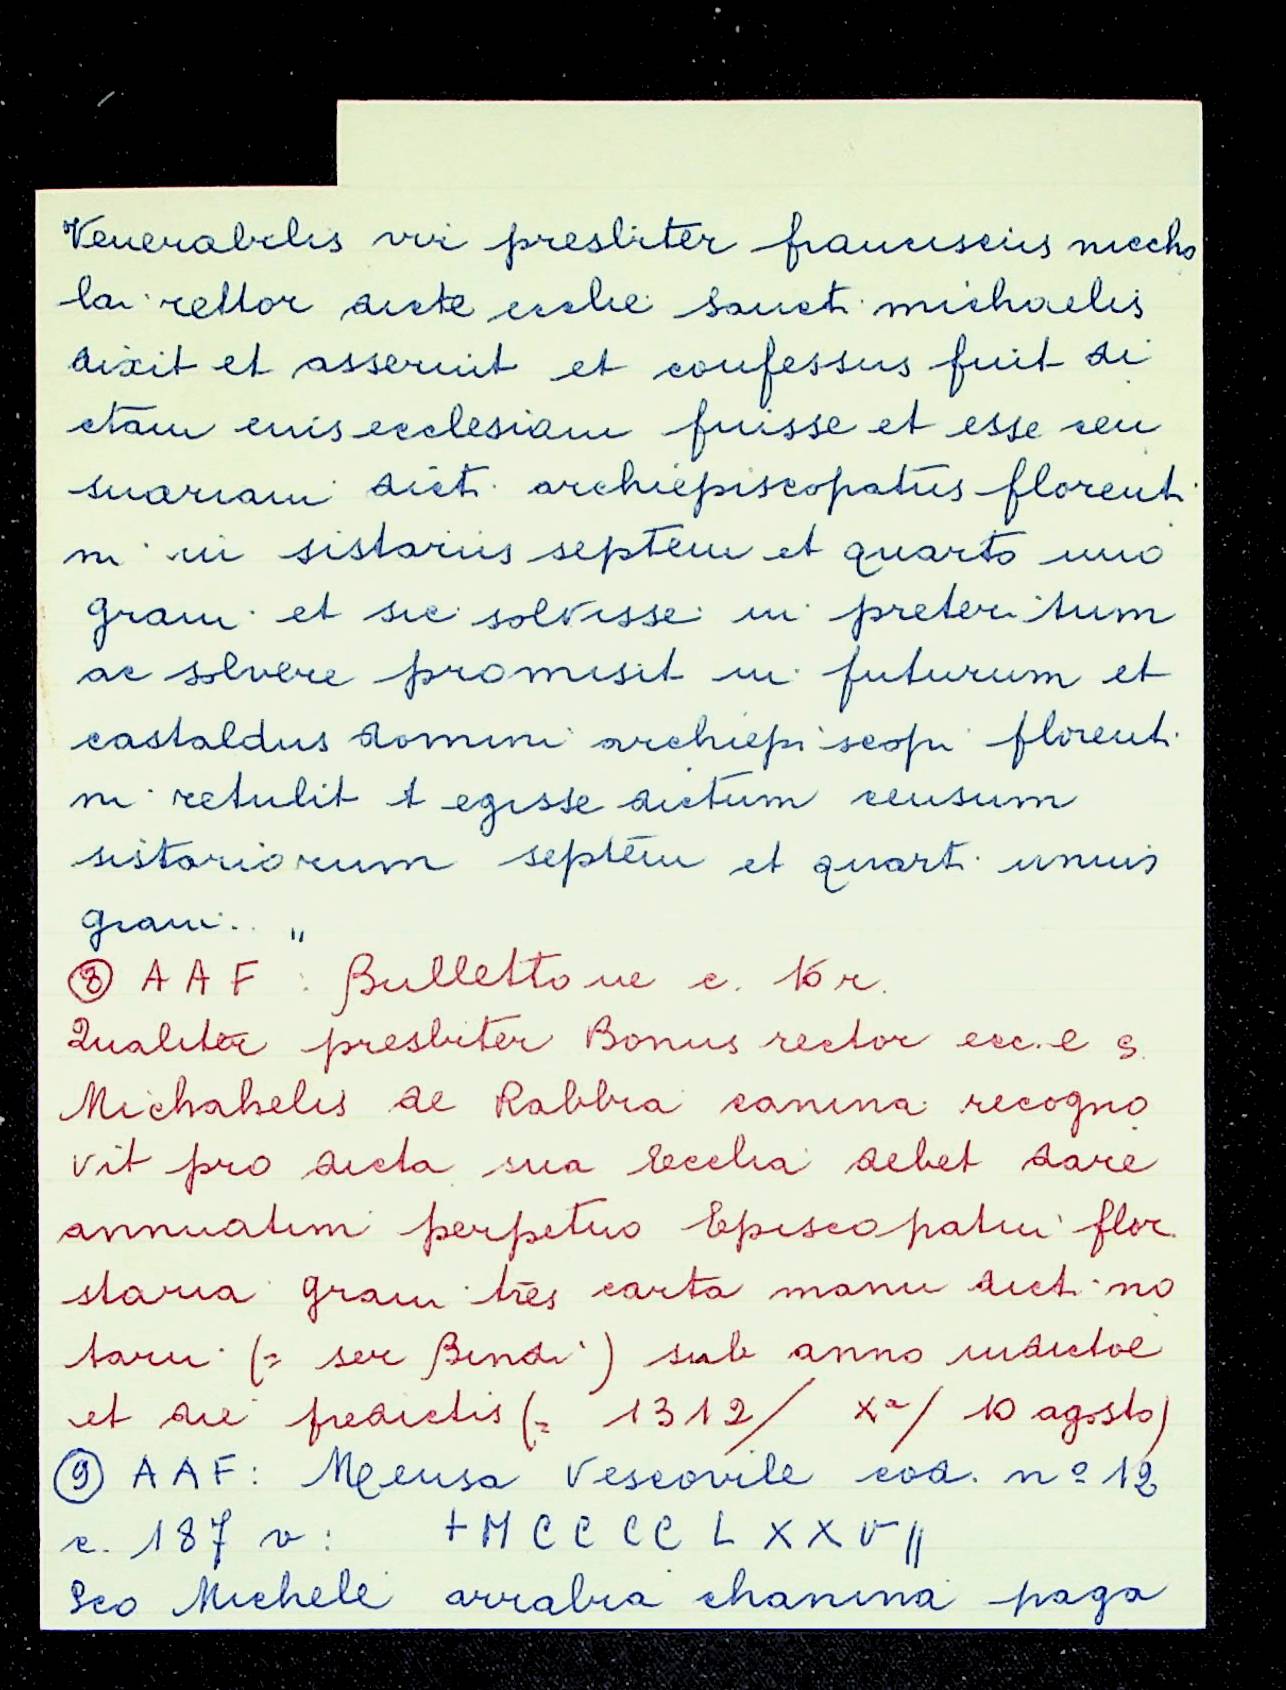 Venerabilis viri presbiter franciscus niccho
lai rettor dicte ecclie sancti michaelis
dixit et asseruit et confessus fuit di
ctam euis ecclesiam fuisse et esse cen
suariam dict. archiepiscopatus florent
ni in sistariis septem et quarto uno
grani et sic solvisse in preteritum
ac solvere promisit in futurum et
castaldus domini archiepiscopi florent
ni retulit t egisse dictum censum
sistariorum septem et quarti unuis
grani.. "
⑧ AAF : Bullettone c. 16 r.
Qualiter presbiter Bonus rector ecc.e S.
Michahelis de Rabbia canina recogno
vit pro dicta sua Ecclia debet dare
annuatim perpetuo Episcopatui flor.
staria grani tres carta manu dicti no
tarii (= ser Bindi) sub anno indictoe
et die predictis (= 1312/ Xª/ 10 agosto)
⑨ AAF: Mensa Vescovile cod. nº 12
c. 187 v: + M C C C C L X X V //
Sco Michele arrabia chanina paga